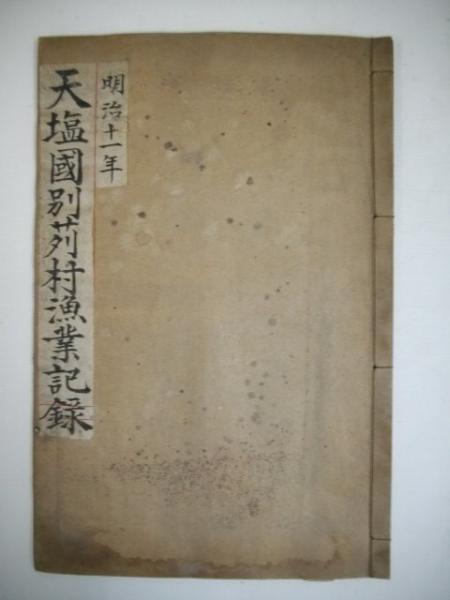 明治十一年
天塩國別苅村漁業記録